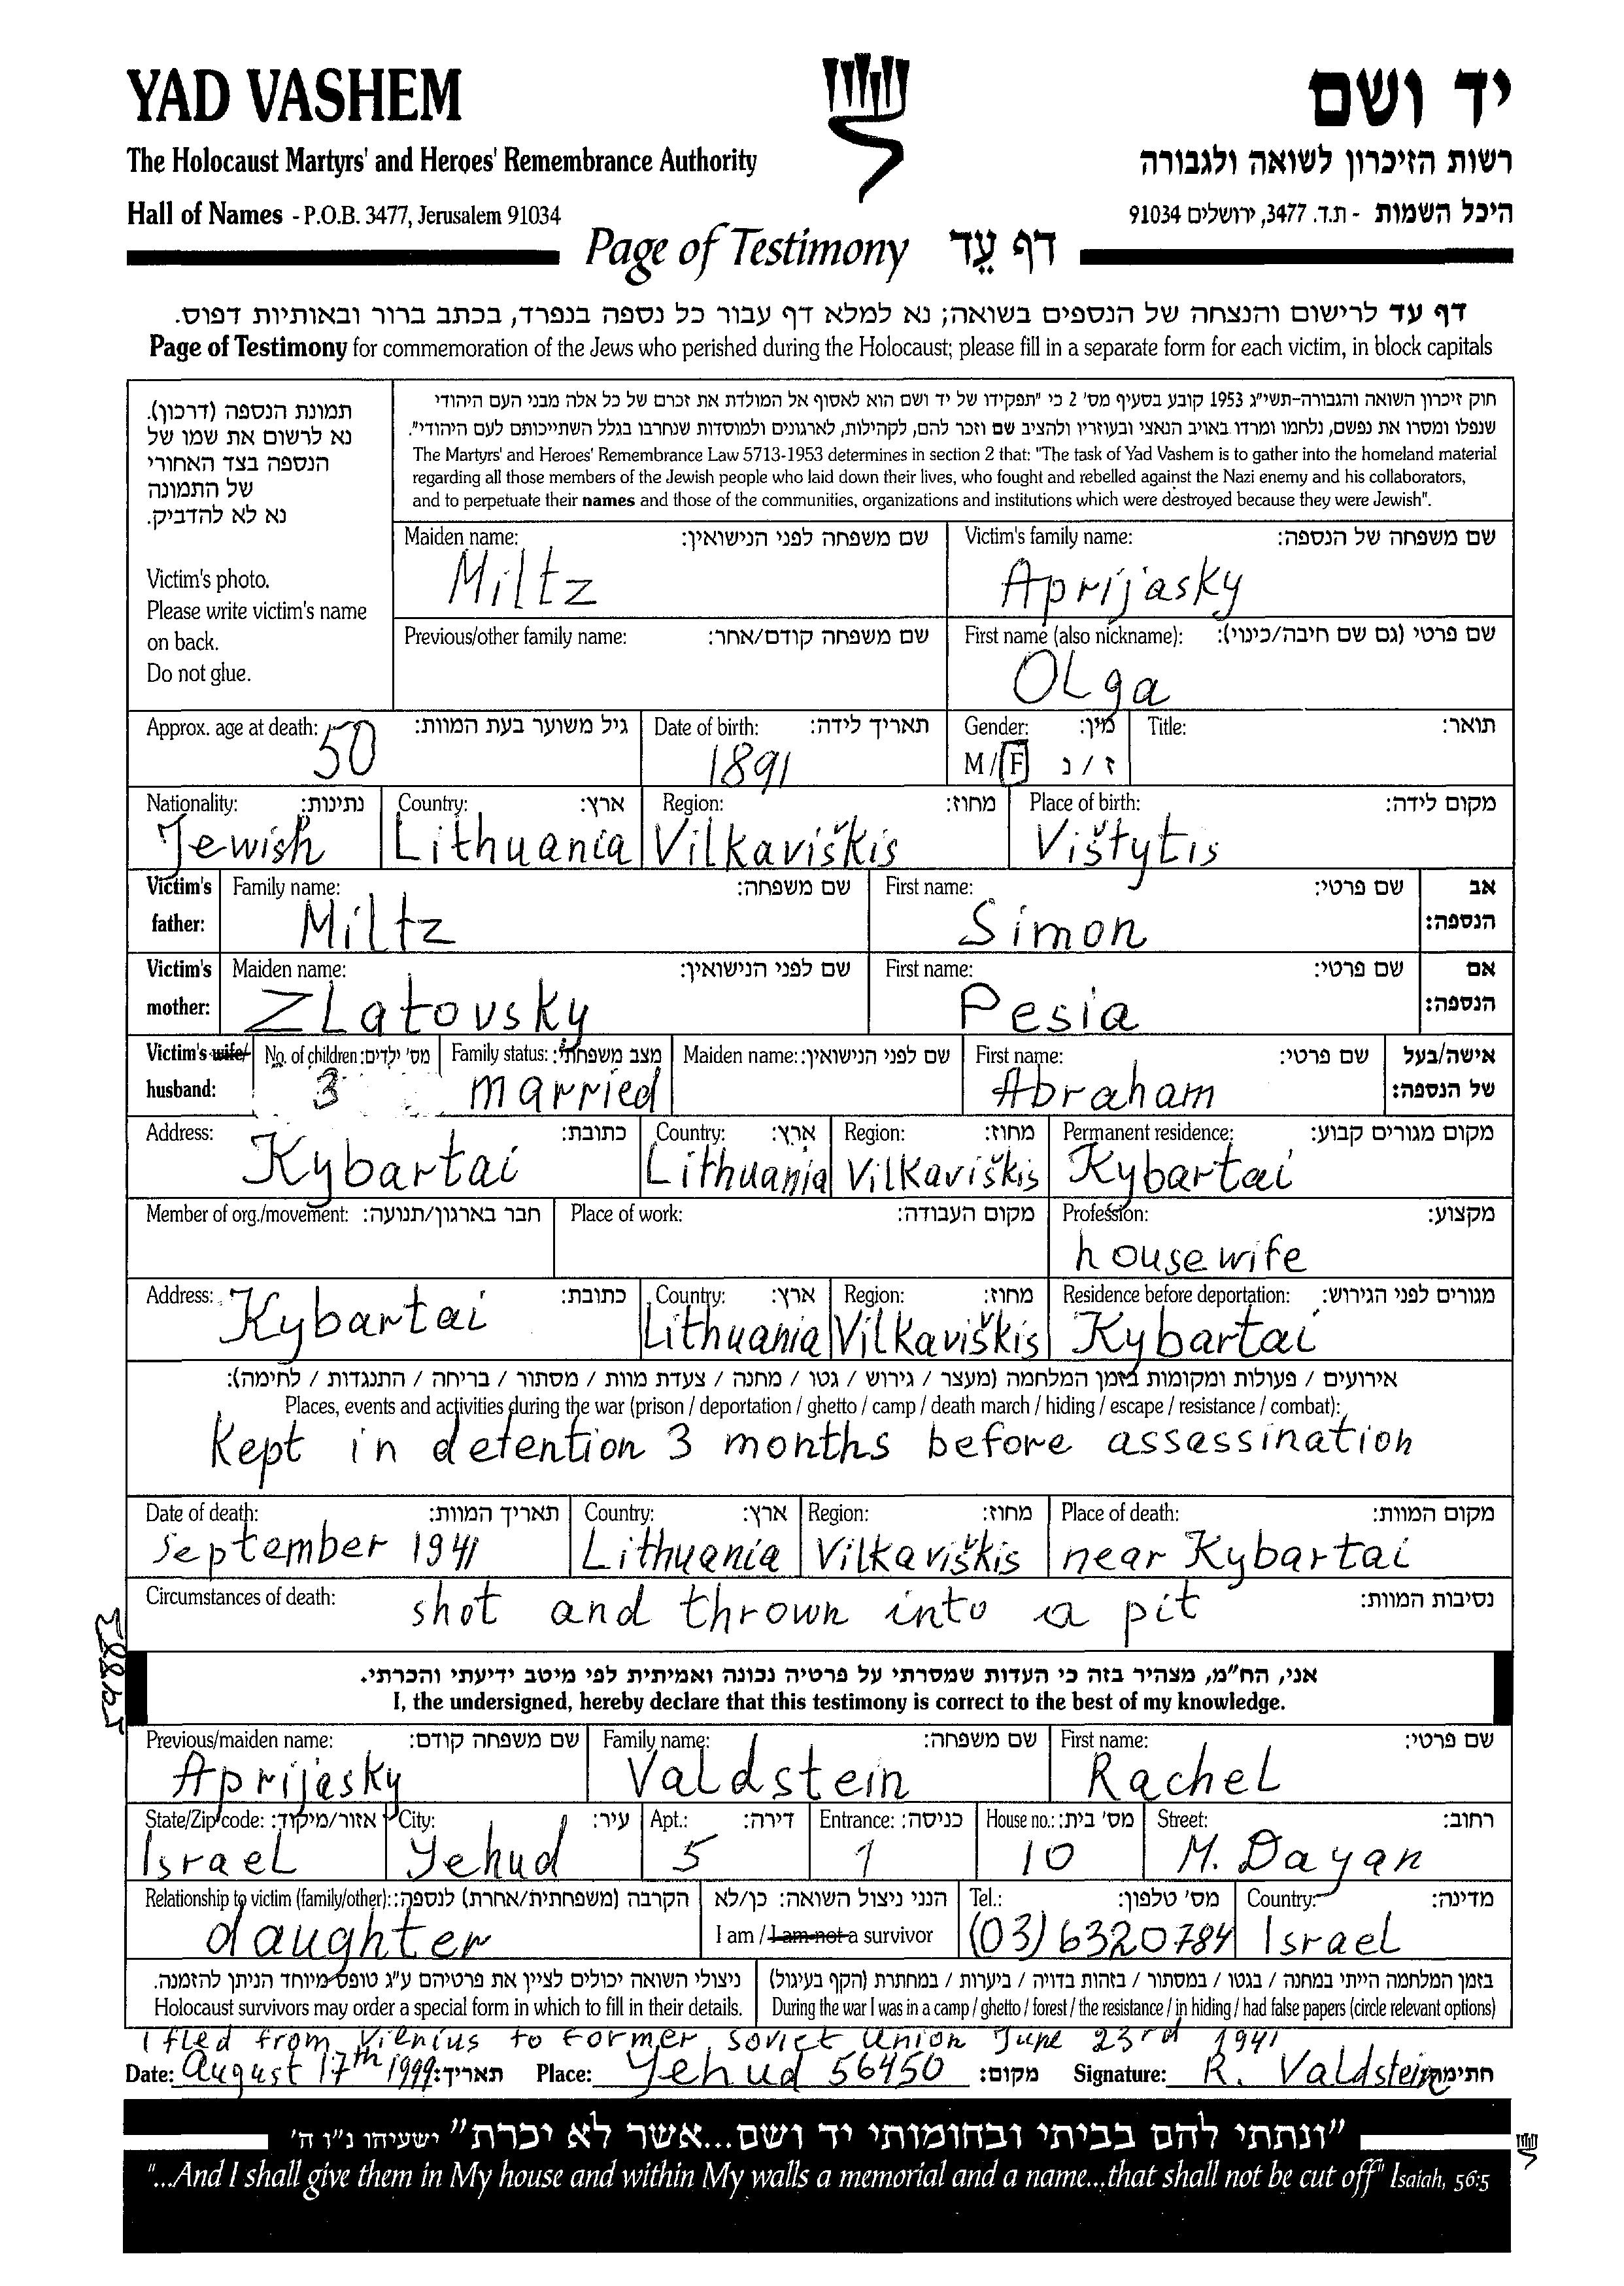 YAD VASHEM
יד ושם
The Holocaust Martyrs' and Heroes' Remembrance Authority
רשות הזיכרון לשואה ולגבורה
Hall of Names - P.O.B. 3477, Jerusalem 91034
היכל השמות - ת.ד. 3477, ירושלים 91034
Page of Testimony דף עֵד
דף עד לרישום והנצחה של הנספים בשואה; נא למלא דף עבור כל נספה בנפרד, בכתב ברור ובאותיות דפוס.
Page of Testimony for commemoration of the Jews who perished during the Holocaust; please fill in a separate form for each victim, in block capitals
תמונת הנספה (דרכון).
נא לרשום את שמו של
הנספה בצד האחורי
של התמונה
נא לא להדביק.
Victim's photo.
Please write victim's name
on back.
Do not glue.
חוק זיכרון השואה והגבורה-תשי"ג 1953 קובע בסעיף מס' 2 כי "תפקידו של יד ושם הוא לאסוף אל המולדת את זכרם של כל אלה מבני העם היהודי
שנפלו ומסרו את נפשם, נלחמו ומרדו באויב הנאצי ובעוזריו ולהציב שם וזכר להם, לקהילות, לארגונים ולמוסדות שנחרבו בגלל השתייכותם לעם היהודי".
The Martyrs' and Heroes' Remembrance Law 5713-1953 determines in section 2 that: "The task of Yad Vashem is to gather into the homeland material
regarding all those members of the Jewish people who laid down their lives, who fought and rebelled against the Nazi enemy and his collaborators,
and to perpetuate their names and those of the communities, organizations and institutions which were destroyed because they were Jewish".
Maiden name: שם משפחה לפני הנישואין: Victim's family name: שם משפחה של הנספה:
Miltz Aprijasky
Previous/other family name: שם משפחה קודם/אחר: First name (also nickname): שם פרטי (גם שם חיבה/כינוי):
OLga
Approx. age at death: גיל משוער בעת המוות: Date of birth: תאריך לידה: Gender: מין: Title: תואר:
50 1891 M / F ז / נ
Nationality: נתינות: Country: ארץ: Region: מחוז: Place of birth: מקום לידה:
Jewish Lithuania Vilkaviškis Vištytis
Victim's father: Family name: שם משפחה: First name: שם פרטי: אב הנספה:
Miltz Simon
Victim's mother: Maiden name: שם לפני הנישואין: First name: שם פרטי: אם הנספה:
ZLatovsky Pesia
Victim's wife/ husband: No. of children: מס' ילדים: Family status: מצב משפחתי: Maiden name: שם לפני הנישואין: First name: שם פרטי: אישה/בעל של הנספה:
3 married Abraham
Address: כתובת: Country: ארץ: Region: מחוז: Permanent residence: מקום מגורים קבוע:
Kybartai Lithuania Vilkaviškis Kybartai
Member of org./movement: חבר בארגון/תנועה: Place of work: מקום העבודה: Profession: מקצוע:
housewife
Address: כתובת: Country: ארץ: Region: מחוז: Residence before deportation: מגורים לפני הגירוש:
Kybartai Lithuania Vilkaviškis Kybartai
אירועים / פעולות ומקומות בזמן המלחמה (מעצר / גירוש / גטו / מחנה / צעדת מוות / מסתור / בריחה / התנגדות / לחימה):
Places, events and activities during the war (prison / deportation / ghetto / camp / death march / hiding / escape / resistance / combat):
Kept in detention 3 months before assassination
Date of death: תאריך המוות: Country: ארץ: Region: מחוז: Place of death: מקום המוות:
September 1941 Lithuania Vilkaviškis near Kybartai
Circumstances of death: shot and thrown into a pit נסיבות המוות:
אני, הח"מ, מצהיר בזה כי העדות שמסרתי על פרטיה נכונה ואמיתית לפי מיטב ידיעתי והכרתי.
I, the undersigned, hereby declare that this testimony is correct to the best of my knowledge.
Previous/maiden name: שם משפחה קודם: Family name: שם משפחה: First name: שם פרטי:
Aprijasky Valdstein RacheL
State/Zip code: אזור/מיקוד: City: עיר: Apt.: דירה: Entrance: כניסה: House no.: מס' בית: Street: רחוב:
IsraeL Yehud 5 1 10 M. Dayan
Relationship to victim (family/other): הקרבה (משפחתית/אחרת) לנספה: הנני ניצול השואה: כן/לא Tel.: מס' טלפון: Country: מדינה:
daughter I am / I am not a survivor (03) 6320784 Israel
ניצולי השואה יכולים לציין את פרטיהם ע"ג טופס מיוחד הניתן להזמנה. בזמן המלחמה הייתי במחנה / בגטו / במסתור / בזהות בדויה / ביערות / במחתרת (הקף בעיגול)
Holocaust survivors may order a special form in which to fill in their details. During the war I was in a camp / ghetto / forest / the resistance / in hiding / had false papers (circle relevant options)
I fled from Vilnius to Former Soviet Union June 23rd 1941
Date: August 17th 1999 תאריך: Place: Yehud 56450 מקום: Signature: R. Valdstein חתימה
"ונתתי להם בביתי ובחומותי יד ושם...אשר לא יכרת" ישעיהו נ"ו ה'
"...And I shall give them in My house and within My walls a memorial and a name...that shall not be cut off" Isaiah, 56:5